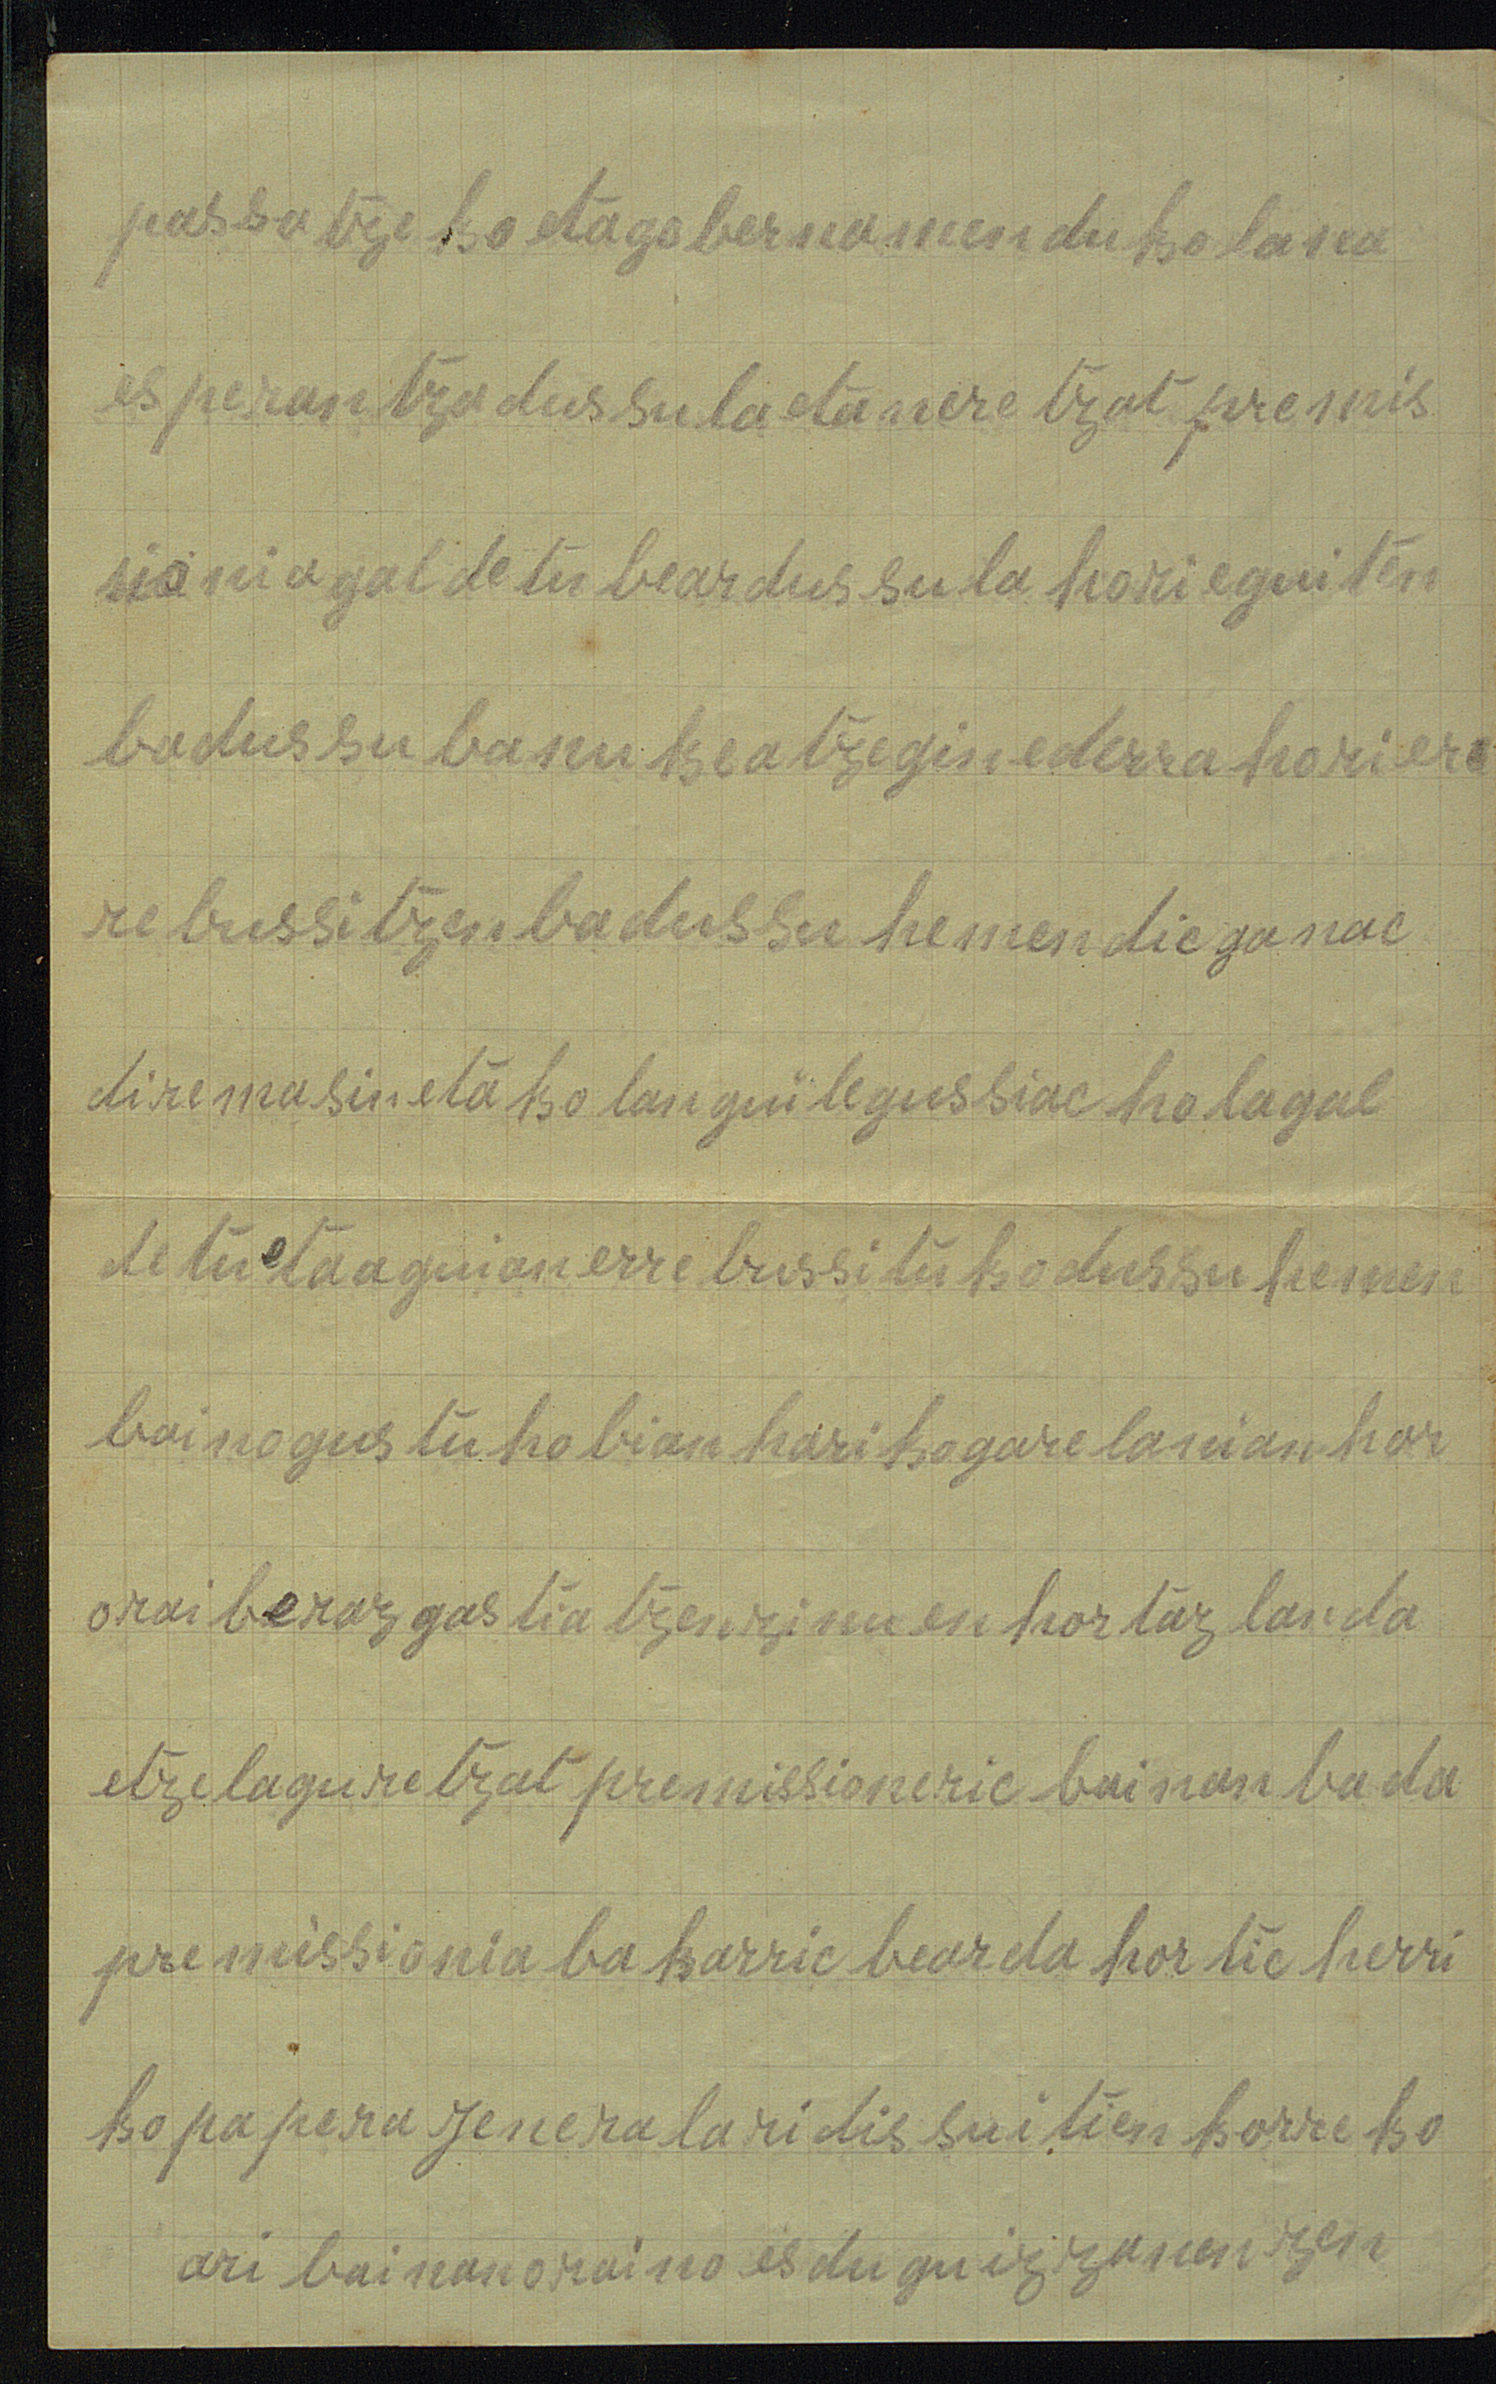 passatzeko eta gobernamenduko lana
esperantza dussula eta neretzat premis
sionia galdetu bear dussula hori eguiten
badussu banukea tzegin ederra hori era
rebussitzen badussu hemendic ganac
diremasin eta kolan guilegussiac hola gal
detu eta aguian errebussituko dussu hemen
baino gustu hobian hariko gare lanian hor
orai beraz gastiatzen zinuen hortaz landa
etzela guretzat premissioneric bainan bada
premissionia bakarric bear da hortic herri
ko papera jeneralari dissuitien horreko
ari bainan oraino es dugu izzanen zen